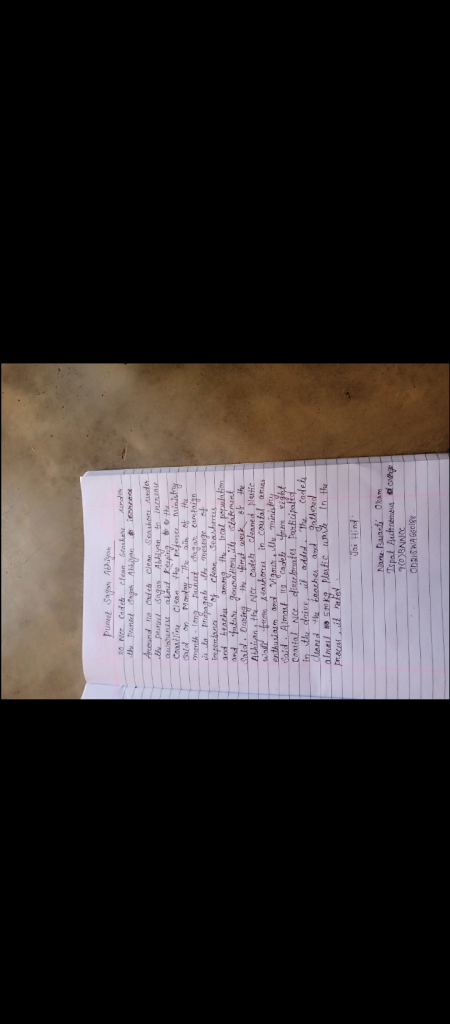 Puneet Sagar Abhiyan
NCC Cadets clean seashore under
the Puneet Sagar Abhiyan
Around Cadets Clean Seashore under
the Puneet Sagar Abhiyan increase
awareness about keeping the
Coastline Clean the Defence ministry
said on Monday The aim of the
month long Puneet Sagar campaign
is to propagate the message of
importance of clean seashores
and beaches among the local population
and future generations, its statement
said. During the first week of the
Abhiyan, the NCC Cadets cleaned Plastic
from seashores in coastal areas
enthusiasm and Vigour, the ministry
said. Almost Cadets from eight
Coastal NCC directorates participated
in the drive, it added. The cadets
cleaned the beaches and gathered
almost Plastic waste in the
process, it
Jai Hind.
Name
College